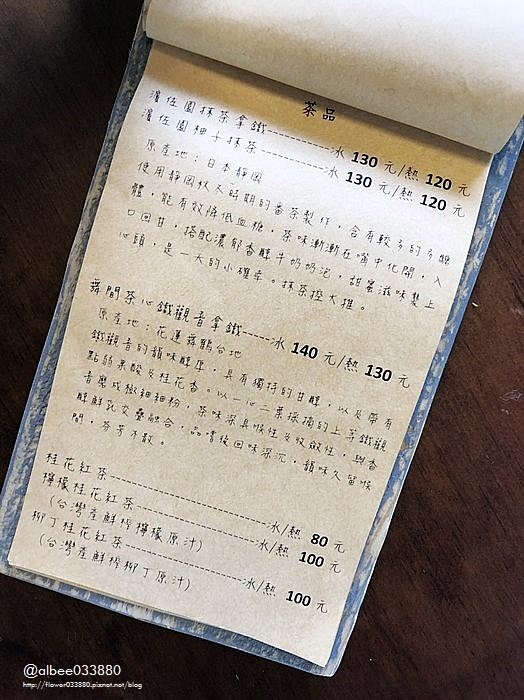 茶品
濱佐園抹茶拿鐵----------冰 130 元/熱 120 元
濱佐園柚子抹茶----------冰 130 元/熱 120 元
原產地：日本靜岡
使用靜岡秋久時期的番茶製作，含有較多的多醣
體，能有效降低血糖，茶味漸漸在嘴中化開，入
口回甘，搭配濃郁香醇牛奶奶泡，甜蜜滋味襲上
心頭，是一天的小確幸。抹茶控大推。
舞間茶心鐵觀音拿鐵-----冰 140 元/熱 130 元
原產地：花蓮舞鶴台地
鐵觀音的韻味醇厚，具有獨特的甘醇，以及帶有
點的果酸及桂花香。以一心二葉採摘的上等鐵觀
音磨成極細細粉，茶味深具喉性及收斂性，與香
醇鮮乳交疊融合，品嚐後回味深沉，韻味久留喉
間，芬芳不散。
桂花紅茶--------------------冰/熱 80 元
檸檬桂花紅茶---------------冰/熱 100 元
(台灣產鮮榨檸檬原汁)
柳丁桂花紅茶---------------冰/熱 100 元
(台灣產鮮榨柳丁原汁)
@albee033880
http://flower033880.pixnet.net/blog